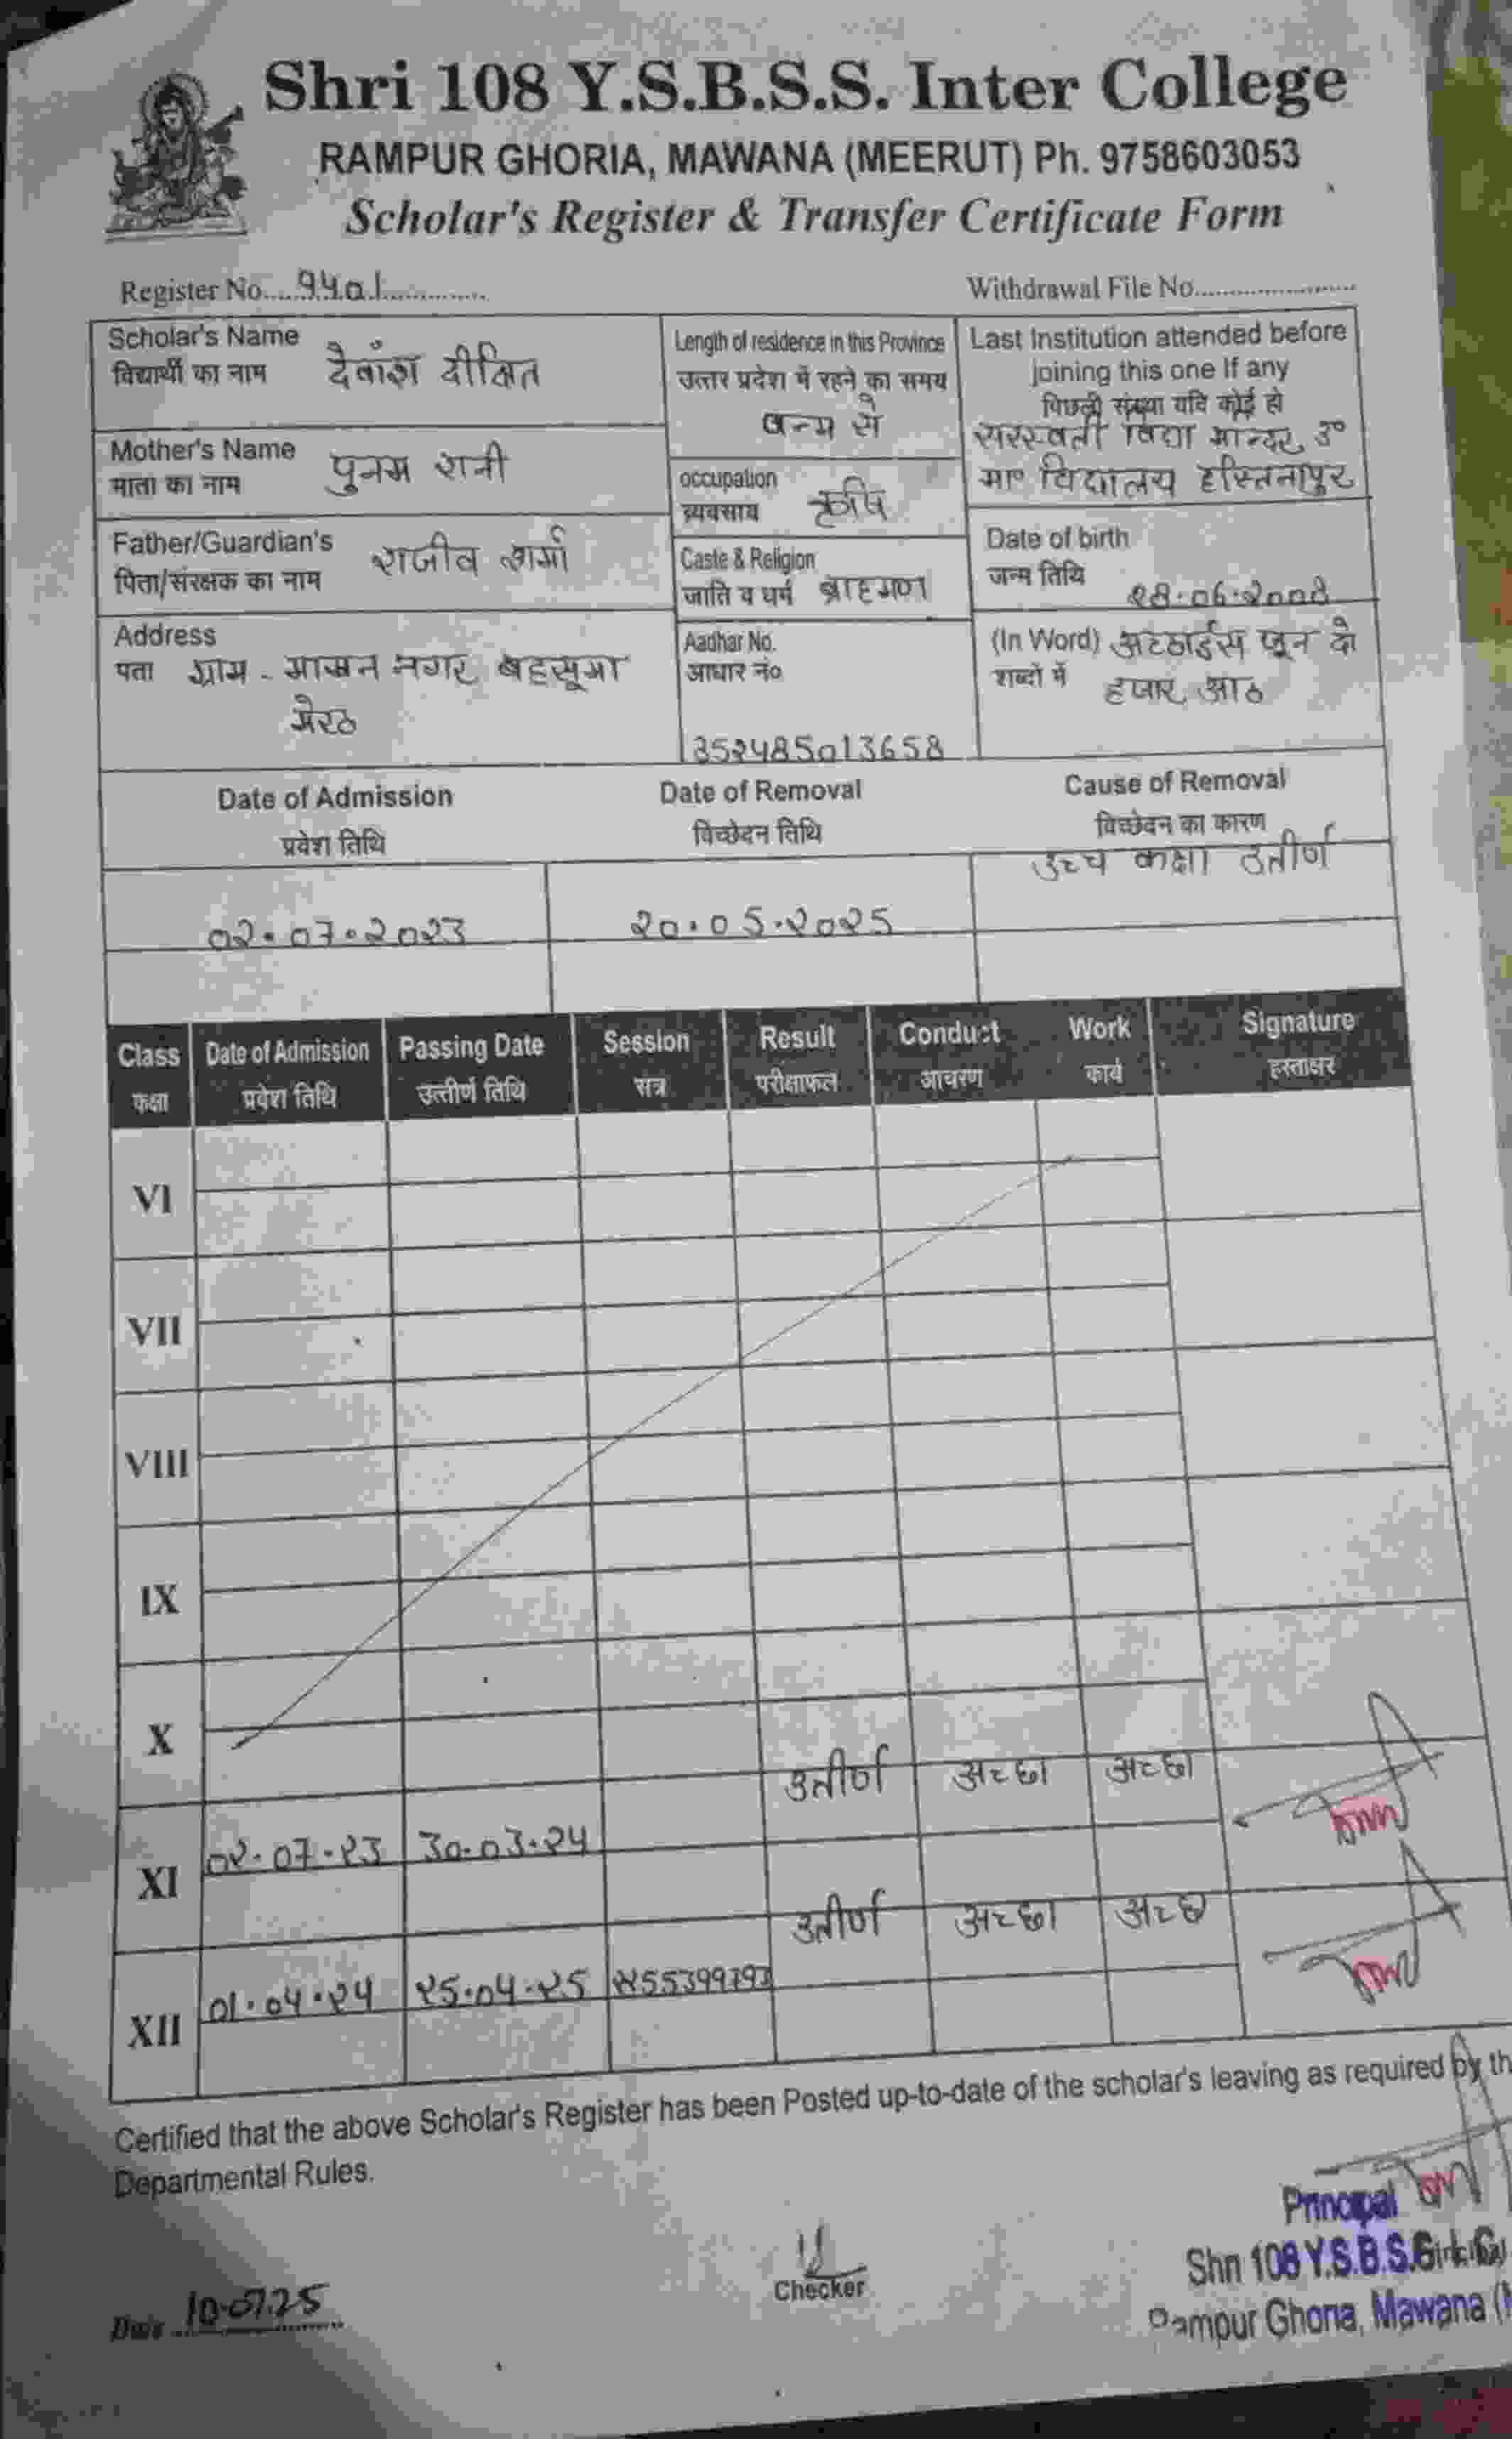 Shri 108 Y.S.B.S.S. Inter College
RAMPUR GHORIA, MAWANA (MEERUT) Ph. 9758603053
Scholar's Register & Transfer Certificate Form
Register No. 9401
Withdrawal File No.
Scholar's Name
विद्यार्थी का नाम देवांश दीक्षित
Mother's Name
माता का नाम पुनम रानी
Father/Guardian's
पिता/संरक्षक का नाम राजीव शर्मा
Address
पता ग्राम - माखन नगर बहसूमा
मेरठ
Length of residence in this Province
उत्तर प्रदेश में रहने का समय
जन्म से
occupation
व्यवसाय कृषि
Caste & Religion
जाति व धर्म ब्राहमण
Aadhar No.
आधार नं०
352485013658
Last Institution attended before
joining this one If any
पिछली संस्था यदि कोई हो
सरस्वती विद्या मन्दिर उ०
मा० विद्यालय हस्तिनापुर
Date of birth
जन्म तिथि
28.06.2008
(In Word) अठ्ठाईस जून दो
शब्दों में हजार आठ
Date of Admission Date of Removal Cause of Removal
प्रवेश तिथि विच्छेदन तिथि विच्छेदन का कारण
02.07.2023 20.05.2025 उच्च कक्षा उत्तीर्ण
Class Date of Admission Passing Date Session Result Conduct Work Signature
कक्षा प्रवेश तिथि उत्तीर्ण तिथि सत्र परीक्षाफल आचरण कार्य हस्ताक्षर
VI
VII
VIII
IX
X
XI 02.07.23 30.03.24 उत्तीर्ण अच्छा अच्छा
XII 01.04.24 25.04.25 उत्तीर्ण अच्छा अच्छा
Certified that the above Scholar's Register has been Posted up-to-date of the scholar's leaving as required by th
Departmental Rules.
Date 10-07.25
Checker
Principal
Shri 108 Y.S.B.S.S.
Rampur Ghoria, Mawana